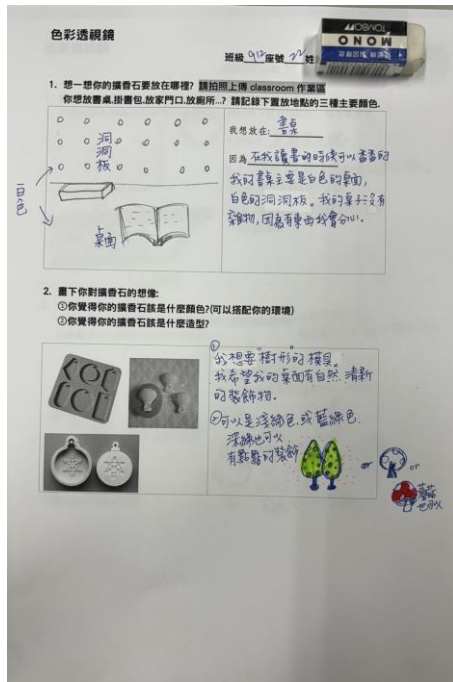 色彩透視鏡
MONO
TOMBOW
班級 912 座號 22 姓
1. 想一想你的擴香石要放在哪裡? 請拍照上傳 classroom 作業區
你想放書桌.掛書包.放家門口.放廁所...? 請記錄下置放地點的三種主要顏色.
洞
洞
板
白色
桌面
我想放在: 書桌
因為 在我讀書的時候可以香香的
我的書桌主要是白色的桌面,
白色的洞洞板。我的桌子沒有
雜物,因為有東西我會分心。
2. 畫下你對擴香石的想像:
①你覺得你的擴香石該是什麼顏色?(可以搭配你的環境)
②你覺得你的擴香石該是什麼造型?
①
我想要"樹形"的模具。
我希望我的桌面有自然.清新
的裝飾物。
②可以是淺綠色,或藍綠色.
深綠也可以
有點點的裝飾
or
or
蘑菇
也可以